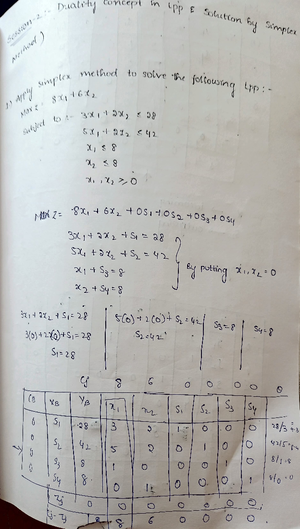 Session-2 :- Duality concept in Lpp & Solution by Simplex
method)
1) Apply simplex method to solve the following Lpp :-
Max Z = 8x₁+6x₂
Subject to : 3x₁+2x₂ ≤ 28
5x₁+2x₂ ≤ 42
x₁ ≤ 8
x₂ ≤ 8
x₁, x₂ ≥ 0
Max Z = 8x₁ + 6x₂ + 0S₁ + 0S₂ + 0S₃ + 0S₄
3x₁ + 2x₂ + S₁ = 28
5x₁ + 2x₂ + S₂ = 42
x₁ + S₃ = 8
x₂ + S₄ = 8
By putting x₁, x₂ = 0
3x₁+2x₂+S₁=28 | 5(0)+2(0)+S₂=42 | S₃=8 | S₄=8
3(0)+2(0)+S₁=28 S₂=42
S₁=28
Cj 8 6 0 0 0 0
CB XB YB x₁ x₂ S₁ S₂ S₃ S₄
0 S₁ 28 3 2 1 0 0 0 28/3
0 S₂ 42 5 2 0 1 0 0 42/5
0 S₃ 8 1 0 0 0 1 0
0 S₄ 8 0 1 0 0 0 1 8/0=0
Zj 0 0 0 0 0 0
8 6 0 0 0 0